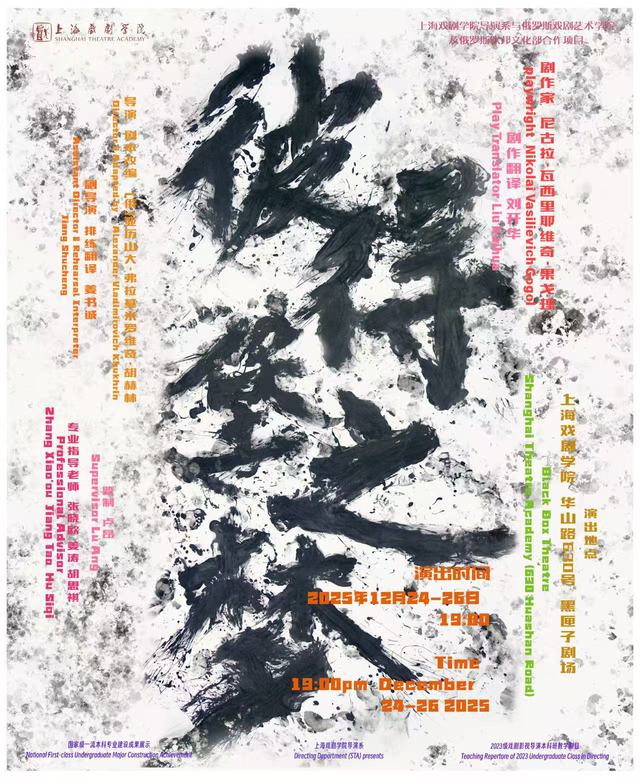 上海戲劇學院
SHANGHAI THEATRE ACADEMY
上海戏剧学院导演系与俄罗斯戏剧艺术学院
及俄罗斯联邦文化部合作项目
彼得堡之梦
剧作家 尼古拉·瓦西里耶维奇·果戈理
playwright Nikolai Vasilievich Gogol
剧作翻译 刘开华
Play Translator Liu Kaihua
Director & Adapted by Alexander Vladimirovich Khukhrin
副导演 排练翻译 姜书诚
Assistant Director & Rehearsal Interpreter
Jiang Shucheng
演出地点
上海戏剧学院 华山路630号 黑匣子剧场
Black Box Theatre
Shanghai Theatre Academy (630 Huashan Road)
监制 卢昂
Supervisor Lu Ang
专业指导老师 张晓欧 姜涛 胡思祺
Professional Advisor
Zhang Xiao'ou Jiang Tao Hu Siqi
演出时间
2025年12月24-26日
19:00
Time
19:00pm December
24-26 2025
国家级一流本科专业建设成果展示
National First-class Undergraduate Major Construction Achievement
上海戏剧学院导演系
Directing Department (STA) presents
2023级戏剧影视导演本科班教学剧目
Teaching Repertore of 2023 Undergraduate Class in Directing